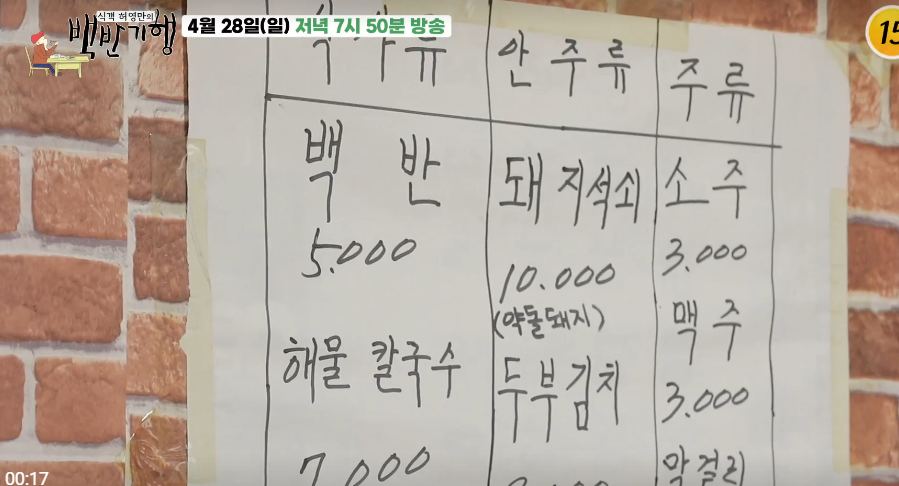 식객 허영만의
백반기행
4월 28일(일) 저녁 7시 50분 방송
15
식사류
안주류
주류
백 반
5.000
해물 칼국수
7.000
돼지석쇠
10.000
(약돌돼지)
두부김치
소주
3.000
맥주
3.000
막걸리
00:17